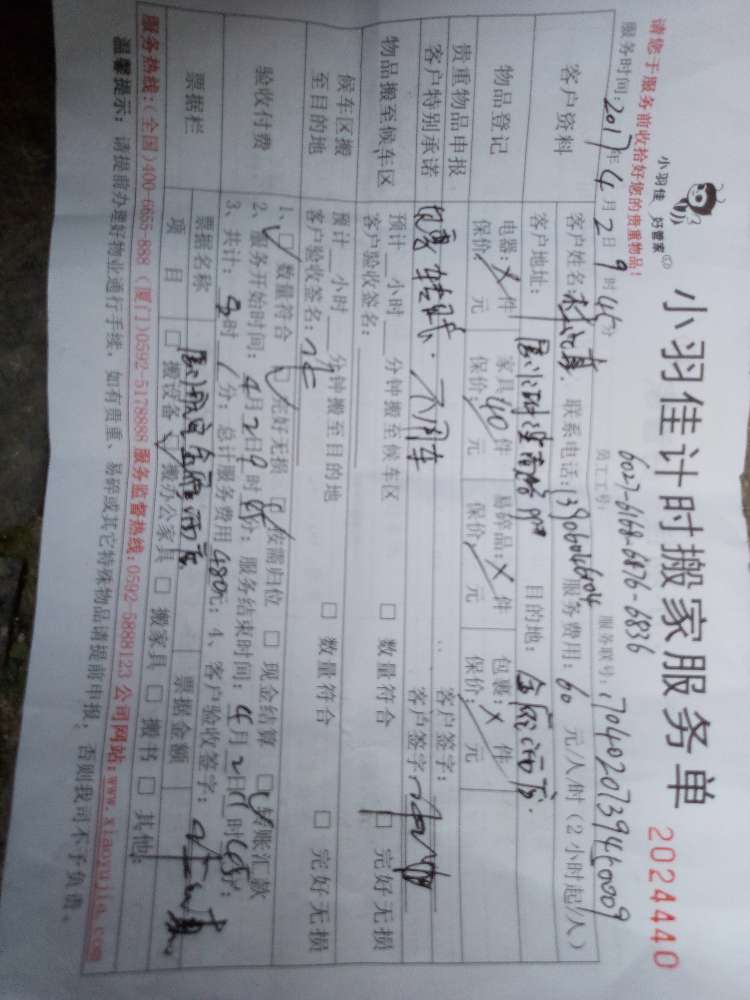 请您于服务前收拾好您的贵重物品！
小羽佳 好管家
小羽佳计时搬家服务单
2024440
员工工号：6027-6168-6876-6836
服务联号：
服务时间：2017年4月2日9时45分
客户资料
客户姓名： 联系电话：13906046094 服务费用：60元/人/时（2小时起/人）
客户地址： 目的地：
物品登记
电器：X件 家具40件 易碎品：X件 包裹：X件
保价： 元 保价： 元 保价： 元 保价： 元
贵重物品申报 客户签字：
客户特别承诺 不用车 客户签字：
物品搬至候车区
预计 小时 分钟搬至候车区 □ 数量符合 □ 完好无损
客户验收签名：
候车区搬至目的地
预计 小时 分钟搬至目的地 □ 数量符合 □ 完好无损
客户验收签名：
验收付费
1、□ 数量符合 □ 完好无损 □ 按需归位 □ 现金结算 □ 转账汇款
2、服务开始时间：4月2日9时 分；服务结束时间：4月2日 时 分；
3、共计： 时 分；总计服务费用480元；4、客户验收签字：
票据栏
票据名称 票据金额
项目 □ 搬设备 □ 搬办公家具 □ 搬家具 □ 搬书 □ 其他：
服务热线：(全国)400-6655-888 (厦门)0592-5178888 服务监督热线：0592-5888123 公司网站：www.xiaoyujia.com
温馨提示：请提前办理好物业通行手续，如有贵重、易碎或其它特殊物品请提前申报；否则我司不予负责。